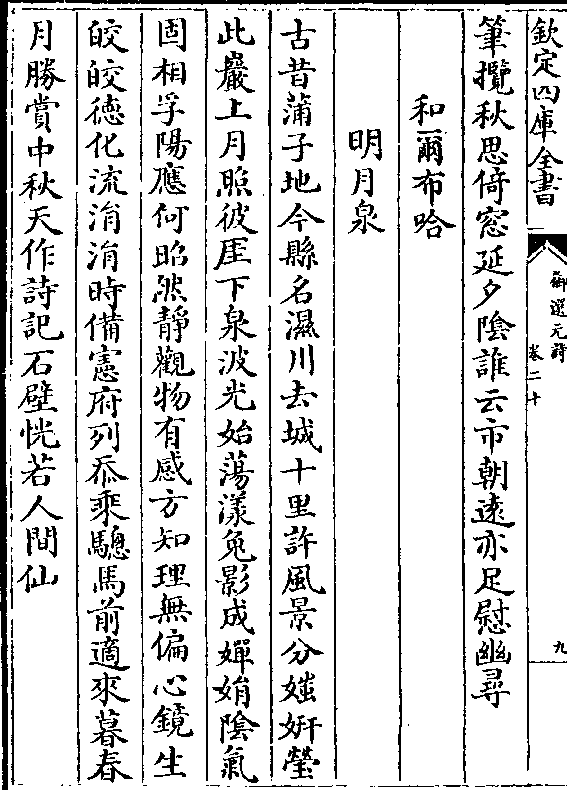 欽定四庫全書
御選元詩
卷二十
九
筆攬秋思倚窓延夕陰誰云市朝遠亦足慰幽尋
和爾布哈
明月泉
古昔蒲子地今縣名濕川去城十里許風景分媸妍瑩
此巖上月照彼厓下泉波光始蕩漾兔影成嬋娟陰氣
固相孚陽應何昭然靜觀物有感方知理無偏心鏡生
皎皎德化流涓涓時備憲府列忝乘驄馬前適來暮春
月勝賞中秋天作詩記石壁恍若人間仙